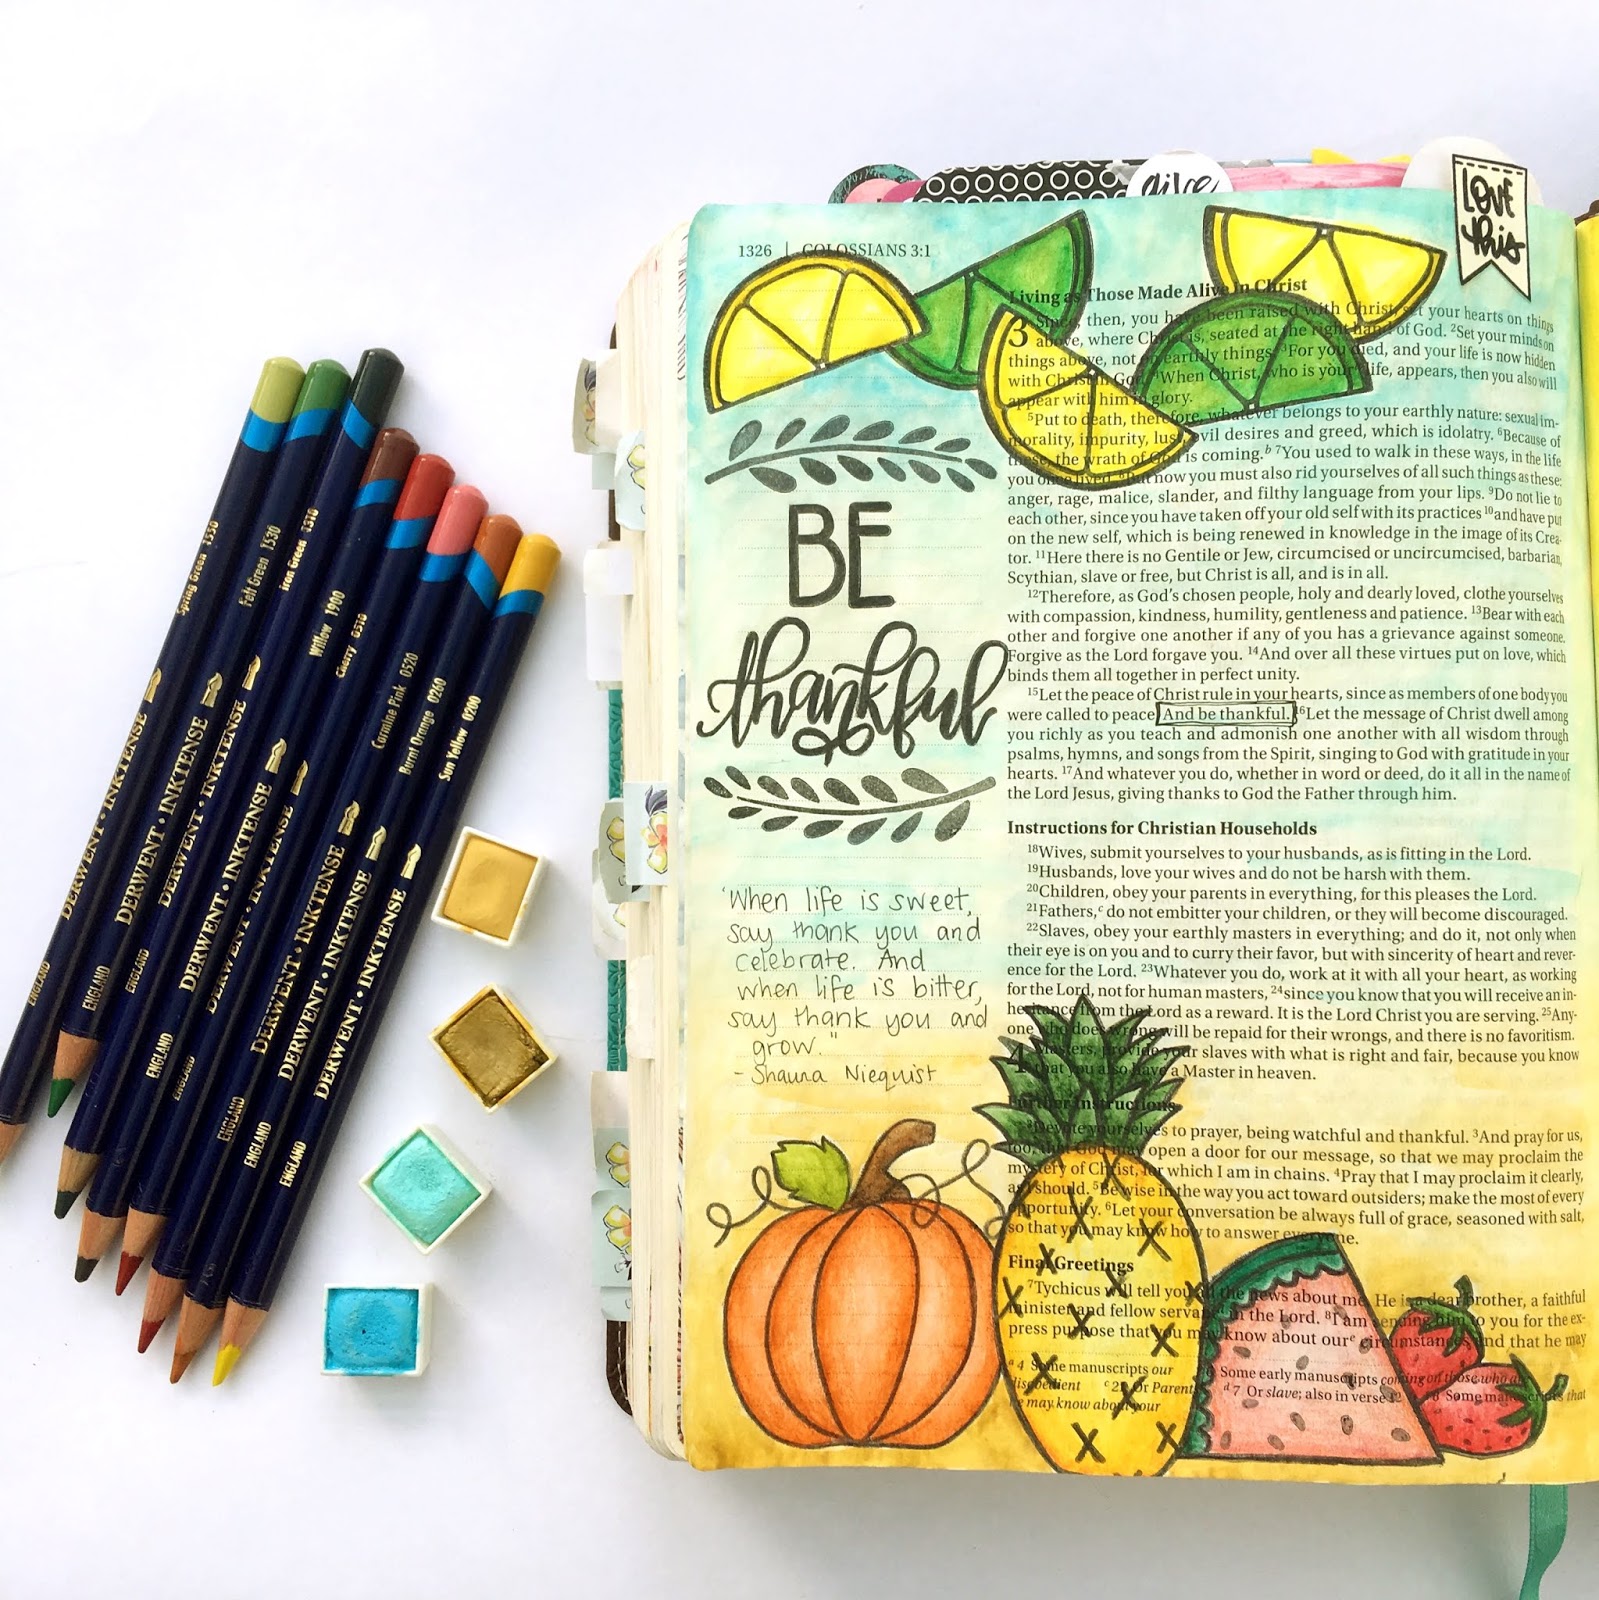 give
LOVE
this
1326 | COLOSSIANS 3:1
Living as Those Made Alive in Christ
3 Since, then, you have been raised with Christ, set your hearts on things
above, where Christ is, seated at the right hand of God. 2Set your minds on
things above, not on earthly things. 3For you died, and your life is now hidden
with Christ in God. 4When Christ, who is your life, appears, then you also will
appear with him in glory.
5Put to death, therefore, whatever belongs to your earthly nature: sexual im-
morality, impurity, lust, evil desires and greed, which is idolatry. 6Because of
these, the wrath of God is coming.b 7You used to walk in these ways, in the life
you once lived. 8But now you must also rid yourselves of all such things as these:
anger, rage, malice, slander, and filthy language from your lips. 9Do not lie to
each other, since you have taken off your old self with its practices 10and have put
on the new self, which is being renewed in knowledge in the image of its Crea-
tor. 11Here there is no Gentile or Jew, circumcised or uncircumcised, barbarian,
Scythian, slave or free, but Christ is all, and is in all.
12Therefore, as God's chosen people, holy and dearly loved, clothe yourselves
with compassion, kindness, humility, gentleness and patience. 13Bear with each
other and forgive one another if any of you has a grievance against someone.
Forgive as the Lord forgave you. 14And over all these virtues put on love, which
binds them all together in perfect unity.
15Let the peace of Christ rule in your hearts, since as members of one body you
were called to peace. And be thankful. 16Let the message of Christ dwell among
you richly as you teach and admonish one another with all wisdom through
psalms, hymns, and songs from the Spirit, singing to God with gratitude in your
hearts. 17And whatever you do, whether in word or deed, do it all in the name of
the Lord Jesus, giving thanks to God the Father through him.
Instructions for Christian Households
18Wives, submit yourselves to your husbands, as is fitting in the Lord.
19Husbands, love your wives and do not be harsh with them.
20Children, obey your parents in everything, for this pleases the Lord.
21Fathers,c do not embitter your children, or they will become discouraged.
22Slaves, obey your earthly masters in everything; and do it, not only when
their eye is on you and to curry their favor, but with sincerity of heart and rever-
ence for the Lord. 23Whatever you do, work at it with all your heart, as working
for the Lord, not for human masters, 24since you know that you will receive an in-
heritance from the Lord as a reward. It is the Lord Christ you are serving. 25Any-
one who does wrong will be repaid for their wrongs, and there is no favoritism.
4 Masters, provide your slaves with what is right and fair, because you know
that you also have a Master in heaven.
Further Instructions
2Devote yourselves to prayer, being watchful and thankful. 3And pray for us,
too, that God may open a door for our message, so that we may proclaim the
mystery of Christ, for which I am in chains. 4Pray that I may proclaim it clearly,
as I should. 5Be wise in the way you act toward outsiders; make the most of every
opportunity. 6Let your conversation be always full of grace, seasoned with salt,
so that you may know how to answer everyone.
Final Greetings
7Tychicus will tell you all the news about me. He is a dear brother, a faithful
minister and fellow servant d in the Lord. 8I am sending him to you for the ex-
press purpose that you may know about our e circumstances and that he may
a 4 Some manuscripts our b 6 Some early manuscripts coming on those who are
disobedient c 21 Or Parents d 7 Or slave; also in verse 12 e 8 Some manuscripts that
he may know about your
BE
thankful
"When life is sweet,
say thank you and
celebrate. And
when life is bitter,
say thank you and
grow."
- Shauna Niequist
Spring Green 1550
Felt Green 1530
Iron Green 1310
Willow 1900
Cherry 0510
Carmine Pink 0520
Burnt Orange 0260
Sun Yellow 0200
DERWENT • INKTENSE
DERWENT • INKTENSE
DERWENT • INKTENSE
DERWENT • INKTENSE
DERWENT • INKTENSE
DERWENT • INKTENSE
DERWENT • INKTENSE
DERWENT • INKTENSE
ENGLAND
ENGLAND
ENGLAND
ENGLAND
ENGLAND
ENGLAND
ENGLAND
ENGLAND